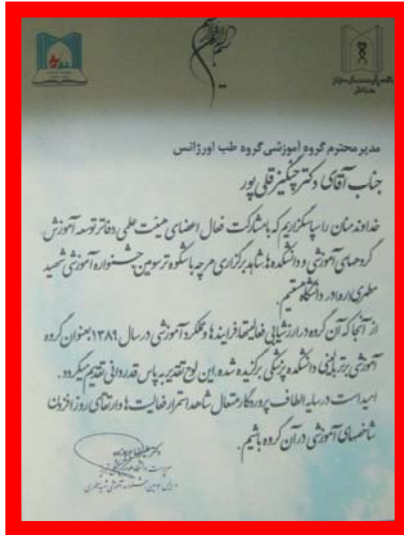 مدیر محترم گروه آموزشی گروه طب اورژانس
جناب آقای دکتر چنگیز قلی پور
خداوند منان را سپاسگزاریم که با مشارکت فعال اعضای هیئت علمی دفاتر توسعه آموزش،
گروههای آموزشی و دانشکده ها شاهد برگزاری هر چه باشکوه تر سومین جشنواره آموزشی شهید
مطهری اردو در دانشگاه هستیم.
از آنجا که آن گروه در ارزشیابی فعالیتها، فرایندها و عملکرد آموزشی در سال ۱۳۸۹ بعنوان گروه
آموزشی برتر بالینی دانشکده پزشکی برگزیده شده، این لوح تقدیر به پاس قدردانی تقدیم میگردد.
امید است در سایه الطاف پروردگار متعال شاهد استمرار فعالیت ها و ارتقای روز افزون
شاخصهای آموزشی در آن گروه باشیم.